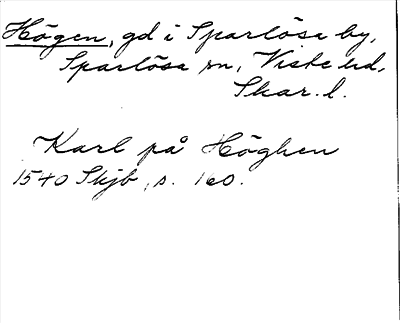 Högen, gd i Sparlösa by,
Sparlösa sn, Viste hd,
Skar. l.
Karl på Höghen
1540 Skjb, s. 160.